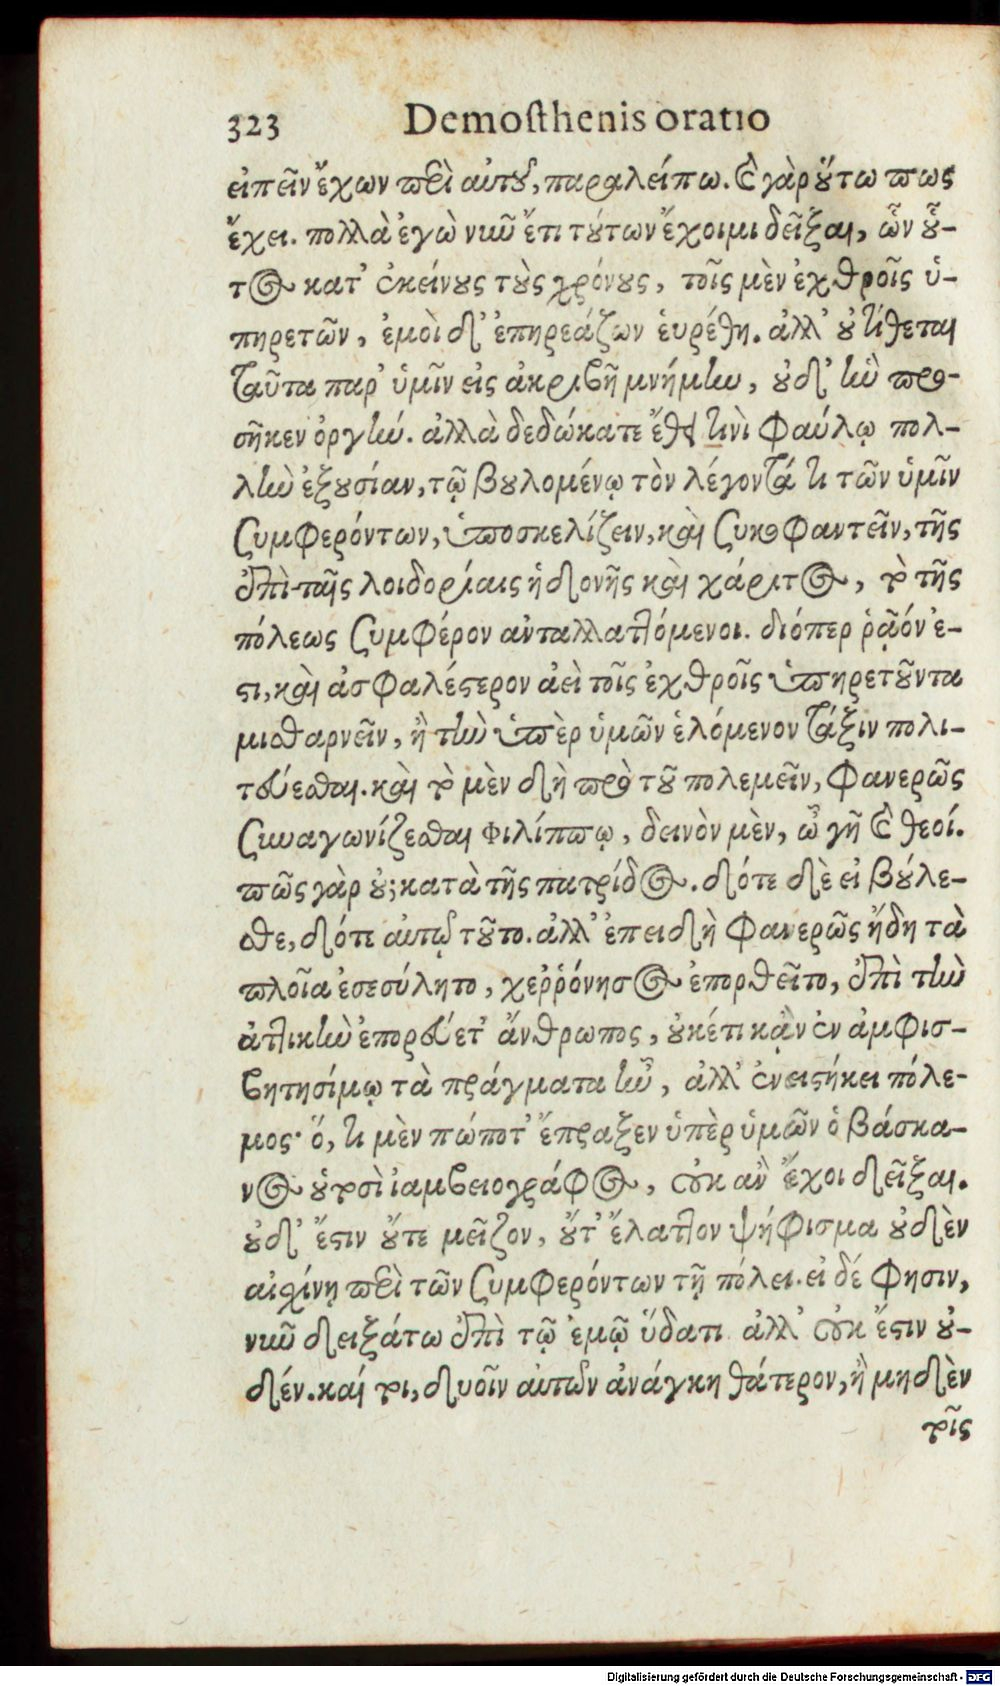 323 Demosthenis oratio
εἰπεῖν ἔχων περὶ αὐτοῦ, παραλείπω. καὶ γὰρ οὕτω πως
ἔχει. πολλὰ ἐγὼ νῦν ἔτι τούτων ἔχοιμι δεῖξαι, ὧν οὗ-
τος κατ' ἐκείνους τοὺς χρόνους, τοῖς μὲν ἐχθροῖς ὑ-
πηρετῶν, ἐμοὶ δ' ἐπηρεάζων ἑυρέθη. ἀλλ' οὐ τίθεται
ταῦτα παρ' ὑμῖν εἰς ἀκριβῆ μνήμην, οὐδ' ἣν προ-
σῆκεν ὀργήν. ἀλλὰ δεδώκατε ἔθει τινὶ φαύλῳ πολ-
λὴν ἐξουσίαν, τῷ βουλομένῳ τὸν λέγοντά τι τῶν ὑμῖν
συμφερόντων, ὑποσκελίζειν, καὶ συκοφαντεῖν, τῆς
ἐπὶ ταῖς λοιδορίαις ἡδονῆς καὶ χάριτος, τὸ τῆς
πόλεως συμφέρον ἀνταλλαττόμενοι. διόπερ ῥᾷόν ἐ-
στι, καὶ ἀσφαλέστερον ἀεὶ τοῖς ἐχθροῖς ὑπηρετοῦντα
μισθαρνεῖν, ἢ τὴν ὑπὲρ ὑμῶν ἑλόμενον τάξιν πολι-
τεύεσθαι. καὶ τὸ μὲν δὴ πρὸ τοῦ πολεμεῖν, φανερῶς
συναγωνίζεσθαι Φιλίππῳ, δεινὸν μὲν, ὦ γῆ καὶ θεοί.
πῶς γὰρ οὐ; κατὰ τῆς πατρίδος. δότε δὲ εἰ βούλε-
σθε, δότε αὐτῷ τοῦτο. ἀλλ' ἐπειδὴ φανερῶς ἤδη τὰ
πλοῖα ἐσεσύλητο, χεῤῥόνησος ἐπορθεῖτο, ἐπὶ τὴν
ἀττικὴν ἐπορεύετ' ἄνθρωπος, οὐκέτι κἂν ἐν ἀμφισ-
βητησίμῳ τὰ πράγματα ἦν, ἀλλ' ἐνειστήκει πόλε-
μος· ὅ, τι μὲν πώποτ' ἔπραξεν ὑπὲρ ὑμῶν ὁ βάσκα-
νος οὑτοσὶ ἰαμβειογράφος, οὐκ ἂν ἔχοι δεῖξαι.
οὐδ' ἔστιν οὔτε μεῖζον, οὔτ' ἔλαττον ψήφισμα οὐδὲν
αἰσχίνῃ περὶ τῶν συμφερόντων τῇ πόλει. εἰ δέ φησιν,
νῦν δειξάτω ἐπὶ τῷ ἐμῷ ὕδατι ἀλλ' οὐκ ἔστιν οὐ-
δέν. καί τοι, δυοῖν αὐτὸν ἀνάγκη θάτερον, ἢ μηδὲν
τοῖς
Digitalisierung gefördert durch die Deutsche Forschungsgemeinschaft - DFG